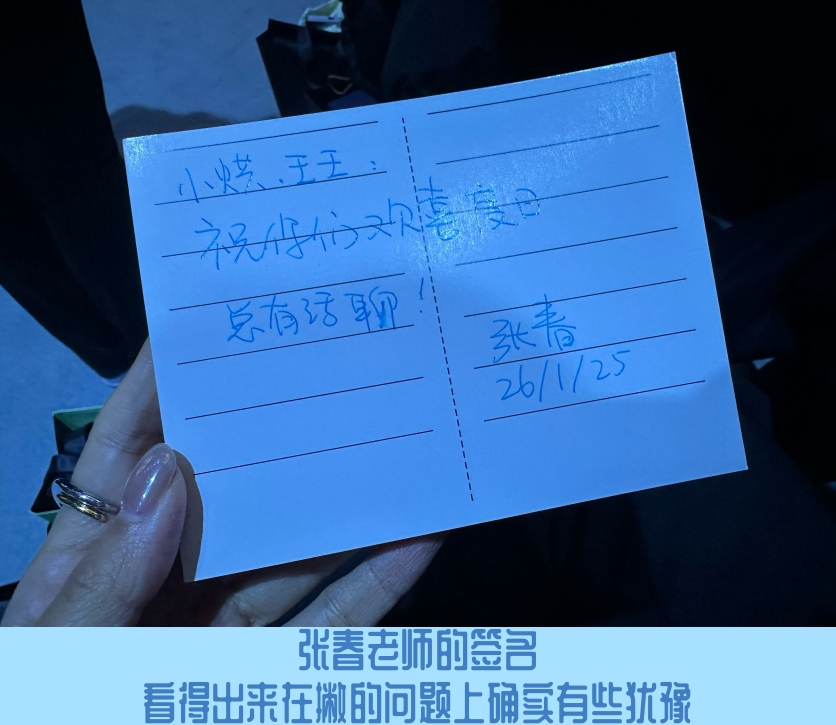 小烘、王王：
祝你们欢喜度日
总有话聊！
张春
26/1/25
张春老师的签名
看得出来在撇的问题上确实有些犹豫